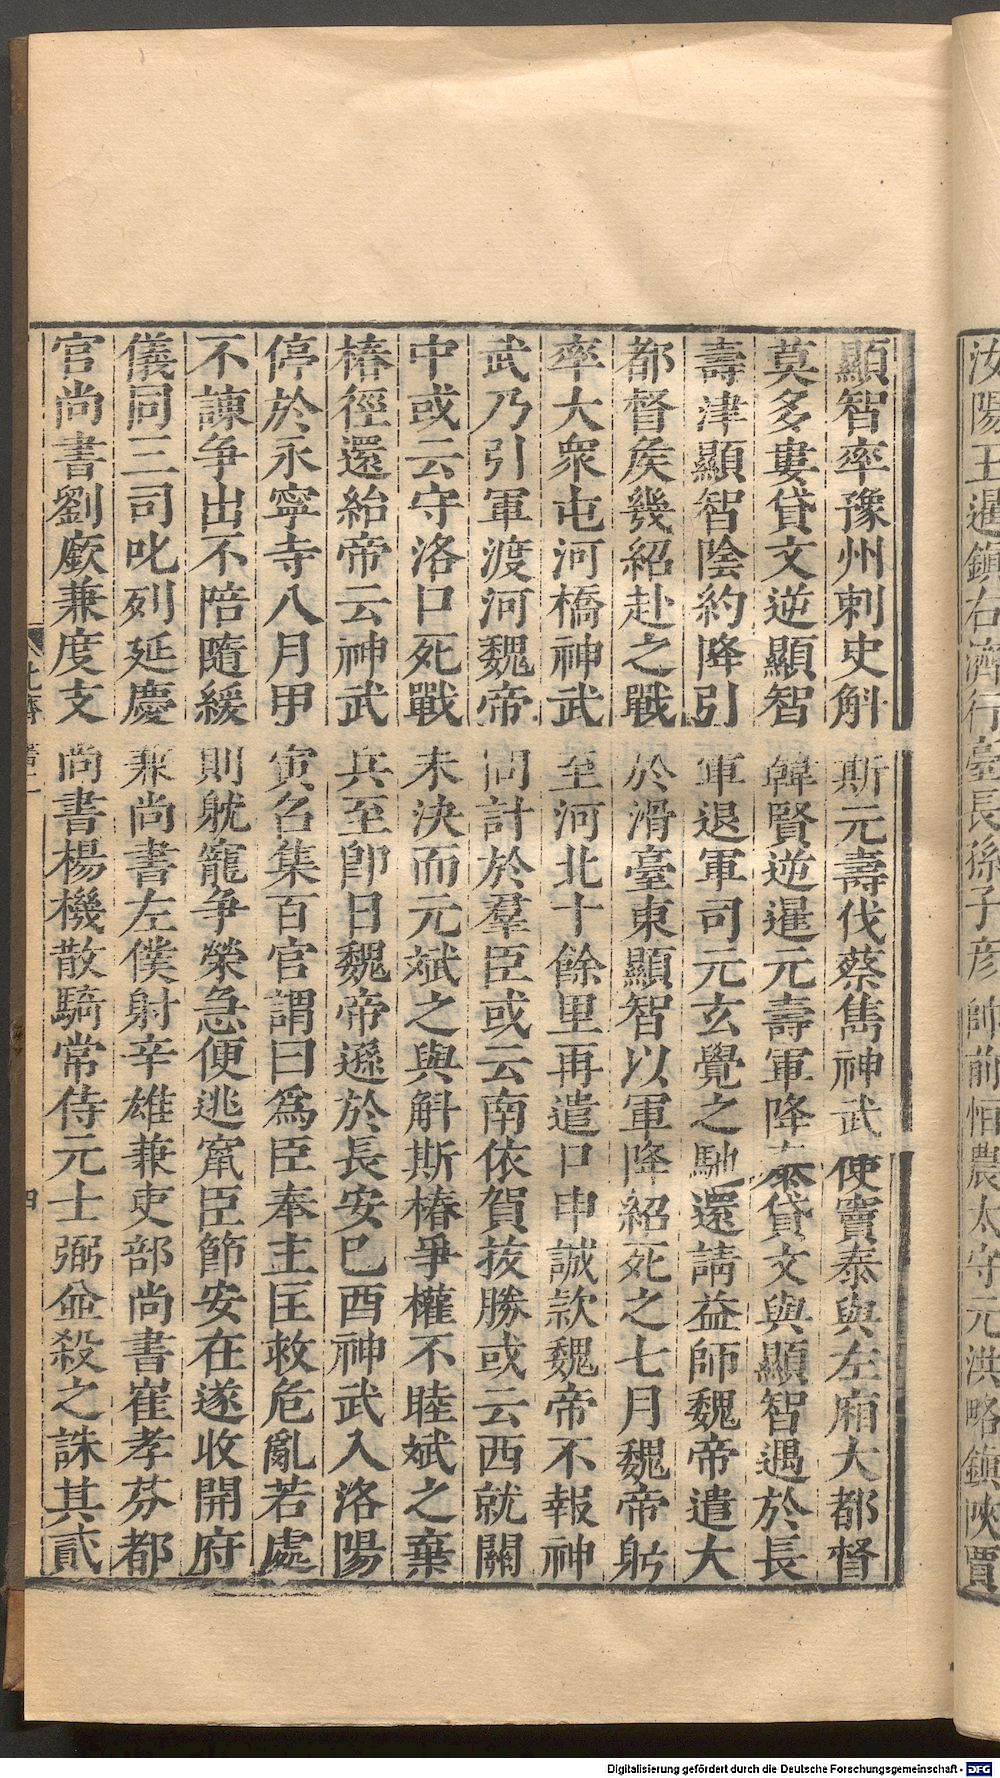 汝陽王暹鎮石濟行臺長孫子彥帥前恒農太守元洪略鎮陝賈
顯智率豫州刺史斛斯元壽伐蔡雋神武使竇泰與左廂大都督
莫多婁貸文逆顯智韓賢逆暹元壽軍降泰貸文與顯智遇於長
壽津顯智陰約降引軍退軍司元玄覺之馳還請益師魏帝遣大
都督矦幾紹赴之戰於滑臺東顯智以軍降紹死之七月魏帝躬
率大衆屯河橋神武至河北十餘里再遣口申誠款魏帝不報神
武乃引軍渡河魏帝問計於羣臣或云南依賀抜勝或云西就關
中或云守洛口死戰未決而元斌之與斛斯椿爭權不睦斌之棄
椿徑還紿帝云神武兵至卽日魏帝遜於長安巳酉神武入洛陽
停於永寧寺八月甲寅召集百官謂曰爲臣奉主匡救危亂若處
不諫争出不陪隨緩則躭寵争榮急便逃竄臣節安在遂收開府
儀同三司叱列延慶兼尚書左僕射辛雄兼吏部尚書崔孝芬都
官尚書劉廞兼度支尚書楊機散騎常侍元士弼並殺之誅其貳
北齊 四
Digitalisierung gefördert durch die Deutsche Forschungsgemeinschaft - DFG